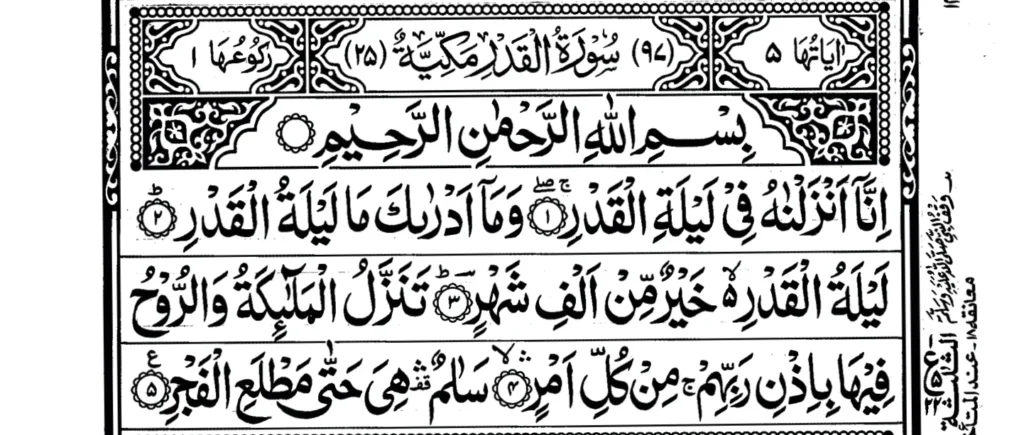 اٰيَاتُهَا ٥ (٩٧) سُوْرَةُ الْقَدْرِ مَكِّيَّةٌ (٢٥) رُكُوْعُهَا ١
بِسْمِ اللّٰهِ الرَّحْمٰنِ الرَّحِيْمِ ۝
اِنَّاۤ اَنْزَلْنٰهُ فِيْ لَيْلَةِ الْقَدْرِ ۝١ ۖۚ وَمَاۤ اَدْرٰىكَ مَا لَيْلَةُ الْقَدْرِ ۝٢ ؕ
لَيْلَةُ الْقَدْرِ ۙ۬ خَيْرٌ مِّنْ اَلْفِ شَهْرٍ ۝٣ ؕ تَنَزَّلُ الْمَلٰٓىِٕكَةُ وَالرُّوْحُ
فِيْهَا بِاِذْنِ رَبِّهِمْ ۚ مِنْ كُلِّ اَمْرٍ ۝٤ ۙۛ سَلٰمٌ ۛ قف هِيَ حَتّٰى مَطْلَعِ الْفَجْرِ ۝٥ ع